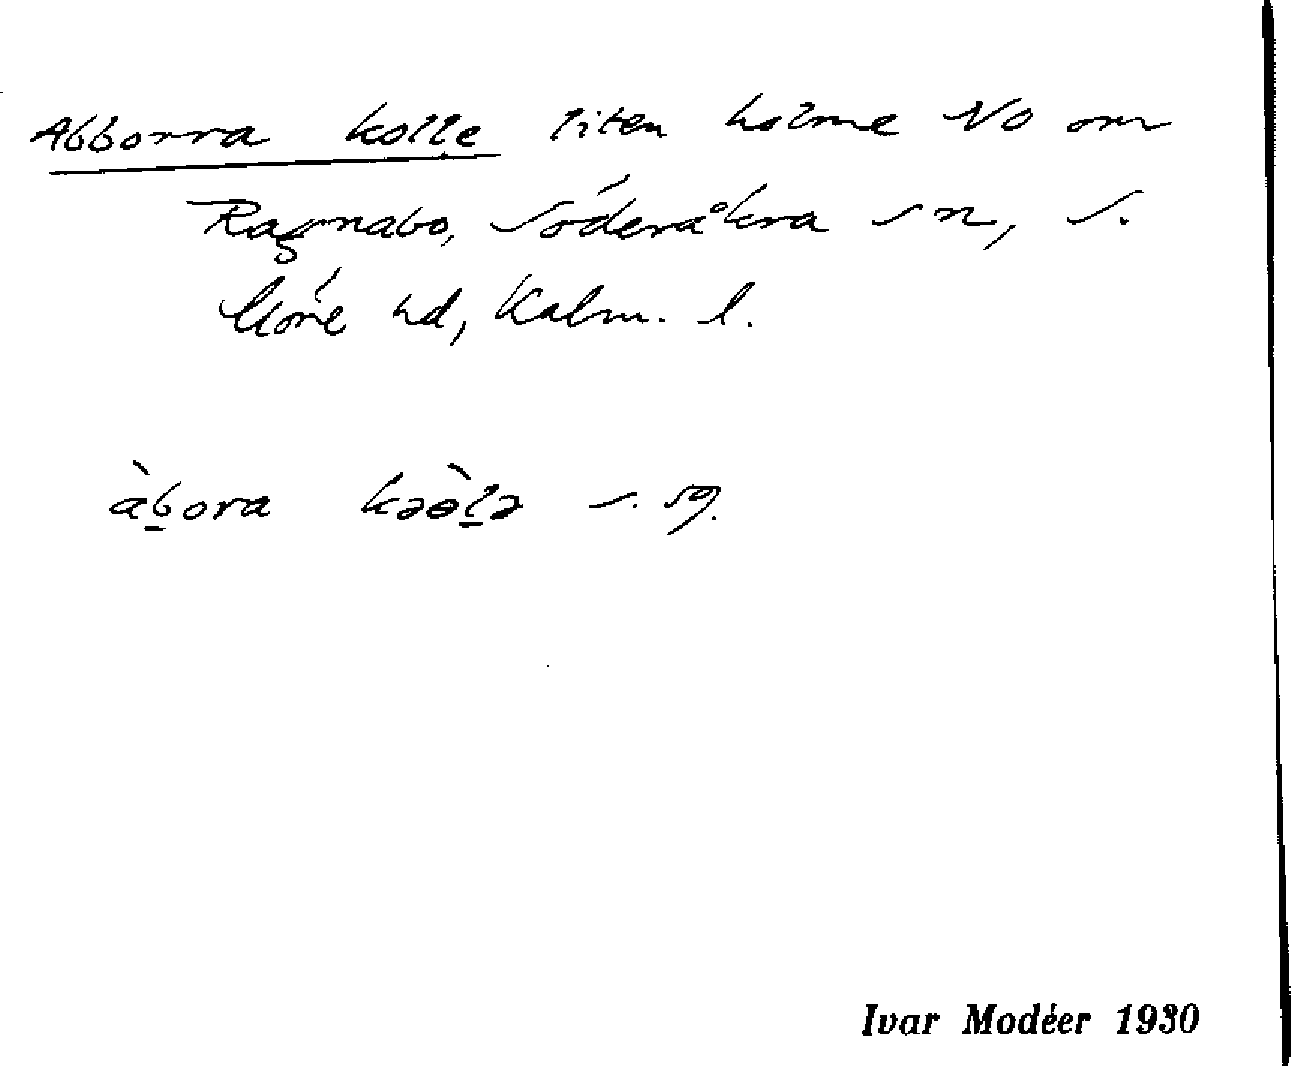 Abborra kolle liten holme NO om
Ragnabo, Söderåkra sn, S.
Möre hd, Kalm. l.
àb̲ora kəɵ̀l̲ə s. sg.
Ivar Modéer 1930